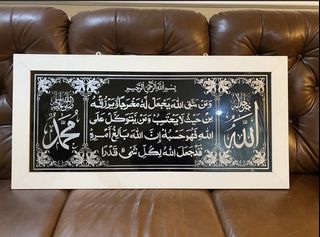 بسم الله الرحمن الرحيم
وَمَن يَتَّقِ اللهَ يَجْعَل لَّهُ مَخْرَجًا وَيَرْزُقْهُ
مِنْ حَيْثُ لَا يَحْتَسِبُ وَمَن يَتَوَكَّلْ عَلَى
اللهِ فَهُوَ حَسْبُهُ إِنَّ اللهَ بَالِغُ أَمْرِهِ
قَدْ جَعَلَ اللهُ لِكُلِّ شَيْءٍ قَدْرًا
الله
محمد